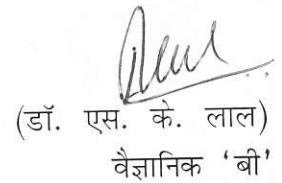 (डॉ. एस. के. लाल)
वैज्ञानिक 'बी'